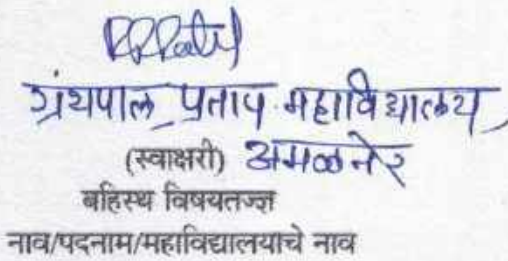 ग्रंथपाल प्रताप महाविद्यालय,
(स्वाक्षरी) अमळनेर
बहिस्थ विषयतज्ज्ञ
नाव/पदनाम/महाविद्यालयाचे नाव